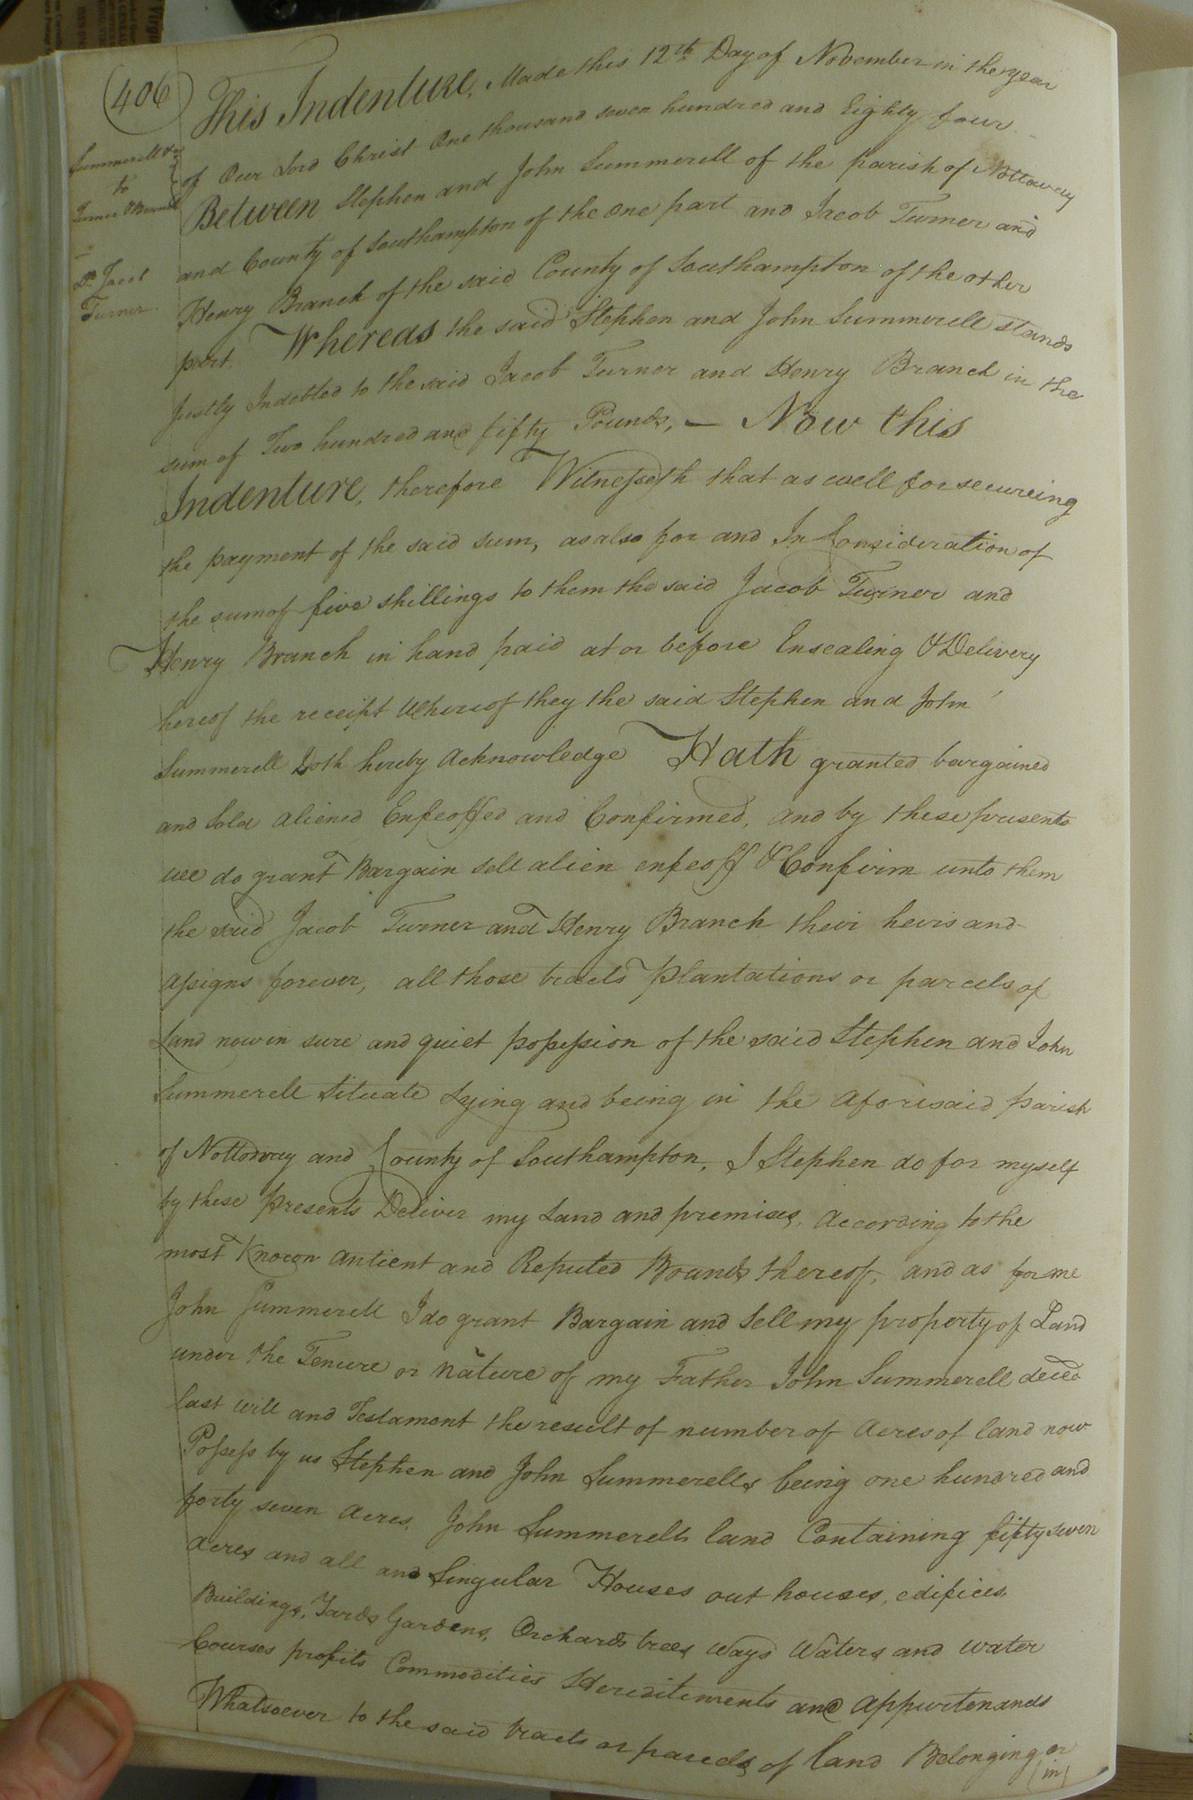 (406)
Summerell &c
to
Turner & Branch
Dd. Jacob
Turner.
This Indenture, Made this 12th Day of November in the year
of Our Lord Christ One thousand seven hundred and Eighty four
Between Stephen and John Summerell of the parish of Nottoway
and County of Southampton of the one part and Jacob Turner and
Henry Branch of the said County of Southampton of the other
part. Whereas the said Stephen and John Summerell stands
justly Indebted to the said Jacob Turner and Henry Branch in the
sum of Two hundred and fifty Pounds, — Now this
Indenture, therefore Witnesseth that as well for secureing
the payment of the said sum, as also for and In Consideration of
the sum of five shillings to them the said Jacob Turner and
Henry Branch in hand paid at or before Ensealing & Delivery
hereof the receipt Whereof they the said Stephen and John
Summerell Doth hereby Acknowledge Hath granted bargained
and Sold aliened Enfeoffed and Confirmed, and by these presents
wee do grant Bargain sell alien enfeoff & Confirm unto them
the said Jacob Turner and Henry Branch their heirs and
assigns forever, all those tracts Plantations or parcels of
Land now in sure and quiet possession of the said Stephen and John
Summerell Situate Lying and being in the Aforesaid parish
of Nottoway and County of Southampton, I Stephen do for myself
by these Presents Deliver my Land and premises, According to the
most Known antient and Reputed Bounds thereof, and as for me
John Summerell I do grant Bargain and Sell my property of Land
under the Tenure or nature of my Father John Summerell deced
last will and Testament the result of number of Acres of land now
Possess by us Stephen and John Summerells being one hundred and
forty seven Acres, John Summerells land Containing fifty seven
Acres and all and Singular Houses out houses, edifices,
Buildings, Yards Gardens, Orchards trees Ways Waters and water
Courses profits Commodities Hereditements and Appurtenances
Whatsoever to the said tracts or parcels of land Belonging or
(in)